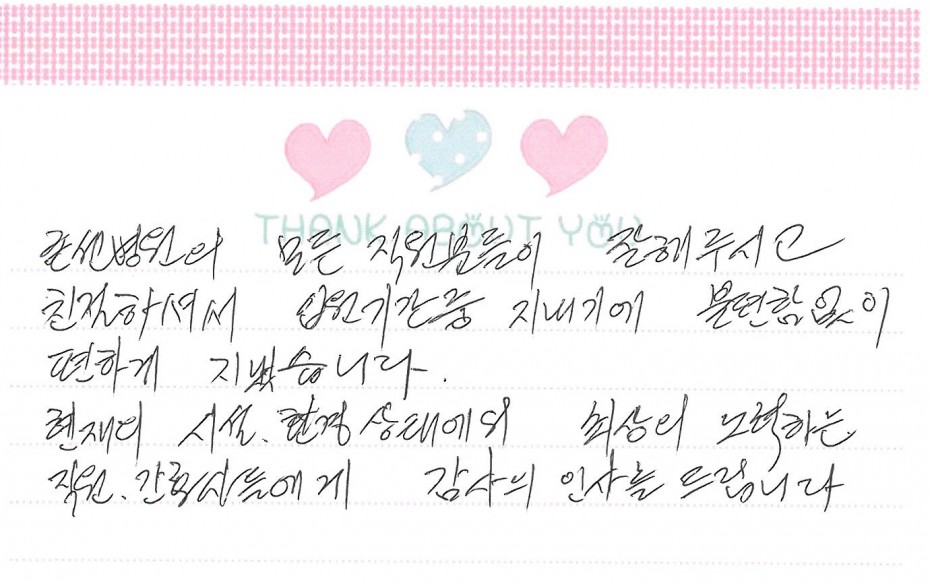 THANK ABOUT YOU
모든 직원분들이 잘해주시고
친절하셔서 입원기간중 지내기에 불편함없이
편하게 지냈습니다.
현재의 시설.환경 상태에의 최상의 노력하는
직원.간호사들에게 감사의 인사를 드립니다